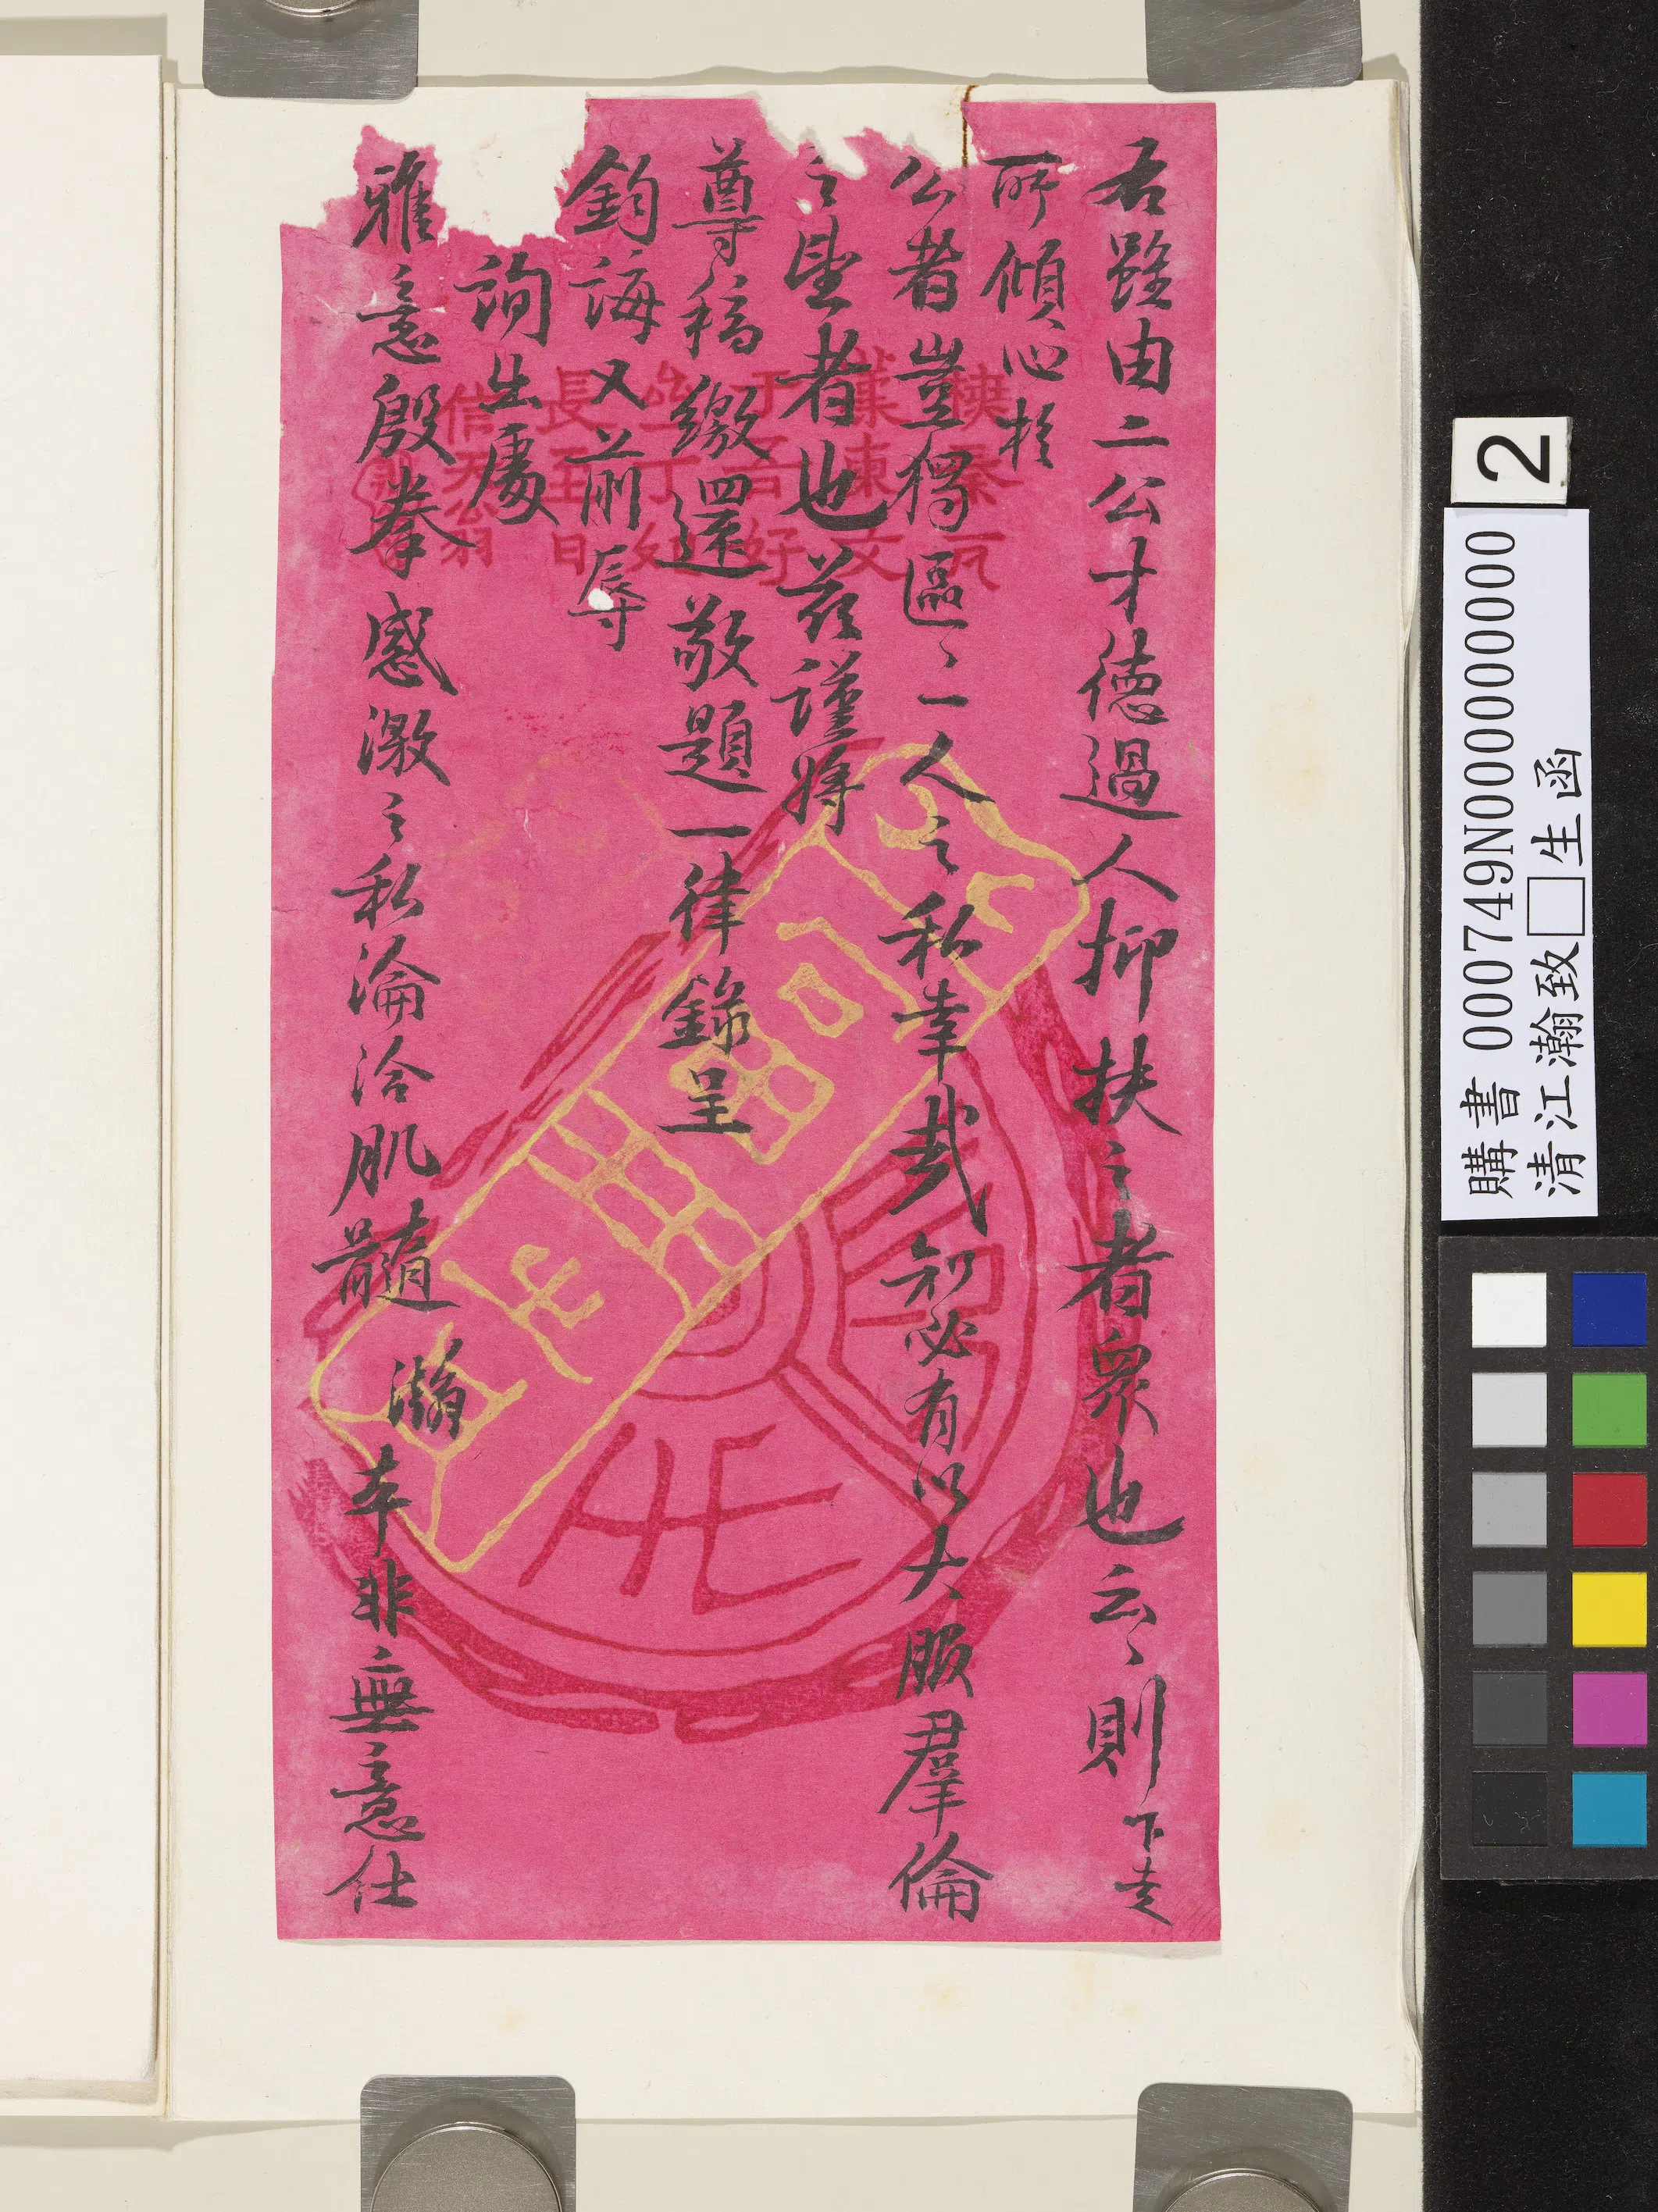 雖由二公才德過人抑扶之者眾也云〻則下走
所傾心於
公者豈獨區〻一人之私幸哉知必有以大服羣倫
之望者也茲謹將
尊稿繳還敬題一律錄呈
鈞誨又前辱
詢出處
雅意殷拳感激之私淪洽肌髓瀚本非無意仕
橅秦瓦
長丑日
信天翁
2
購書 000749N000000000
清江瀚致□生函